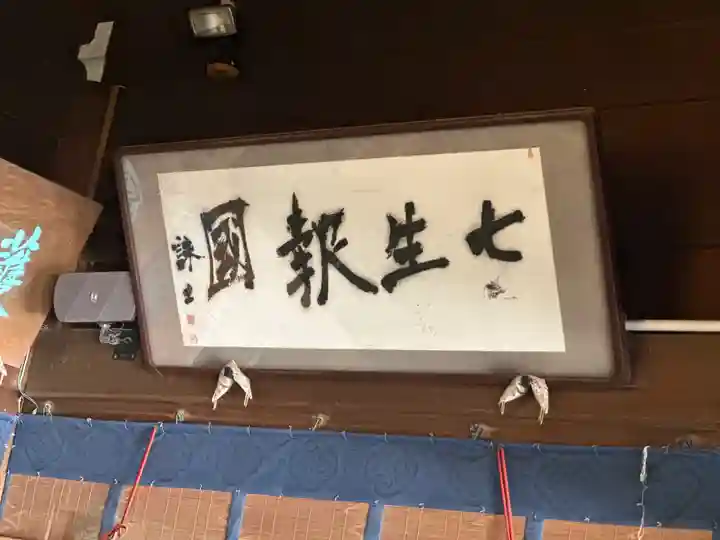 七生報國